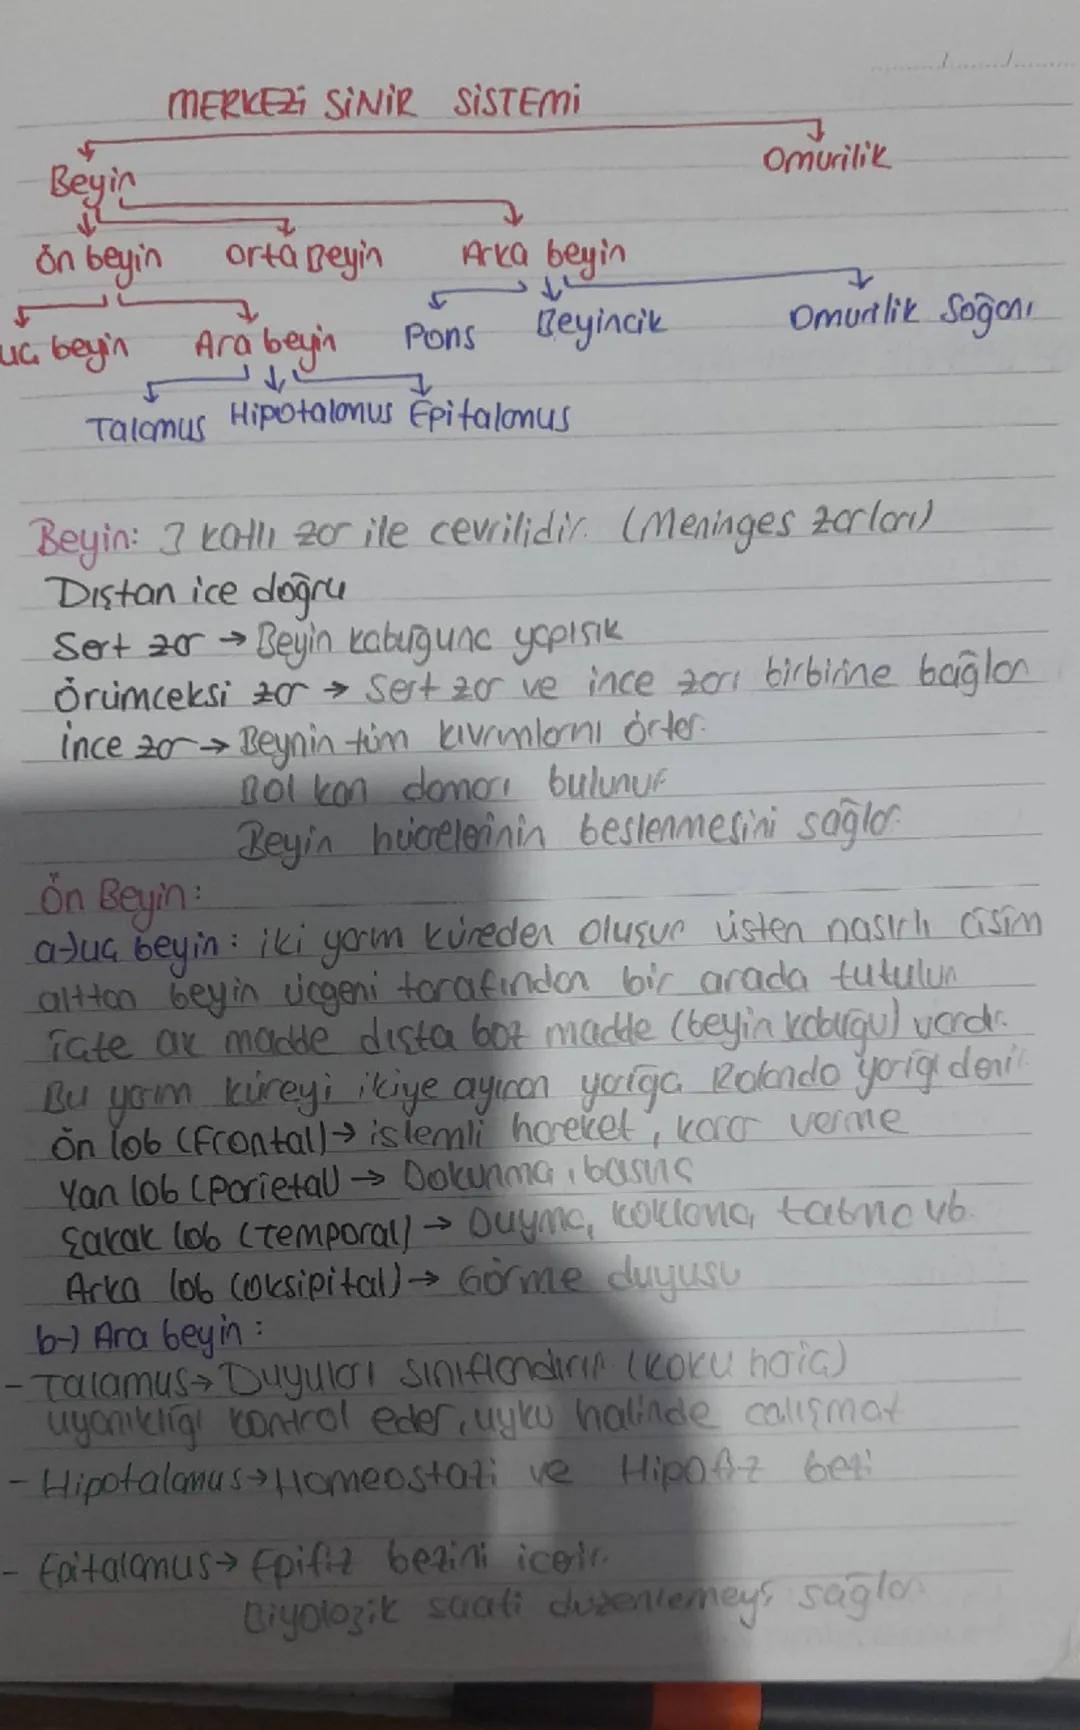 MERKEZİ SİNİR SİSTEMİ
Beyin Omurilik
Ön beyin Orta Beyin Arka beyin
uç beyin Ara beyin Pons Beyincik Omurilik Soğanı
Talamus Hipotalamus Epitalamus
Beyin: 3 katlı zar ile cevrilidir. (Meninges zarları)
Dıştan ice doğru
Sert zar → Beyin kabuğuna yapışık
Örümceksi zar → Sert zar ve ince zarı birbirine bağlar
İnce zar → Beynin tüm kıvrımlarnı örter.
Bol kan damarı bulunur
Beyin hücrelerinin beslenmesini sağlar.
Ön Beyin:
a-) uç beyin: iki yarım küreden oluşur üsten nasırlı cisim
alttan beyin üçgeni tarafından bir arada tutulur
içte ak madde dışta boz madde (beyin kabuğu) vardır.
Bu yarım küreyi ikiye ayıran yarığa Rolando yarığı denir.
Ön lob (Frontal) → istemli hareket, karar verme
Yan lob (Parietal) → Dokunma, basınç
Şakak lob (Temporal) → Duyma, koklama, tatma vb.
Arka lob (oksipital) → Görme duyusu
b-) Ara beyin:
- Talamus → Duyuları sınıflandırır (koku hariç)
uyanıklığı kontrol eder, uyku halinde calışmaz
- Hipotalamus → Homeostazi ve Hipofiz bezi
- Epitalamus → Epifiz bezini icerir.
Biyolozik saati düzenlemeyi sağlar.